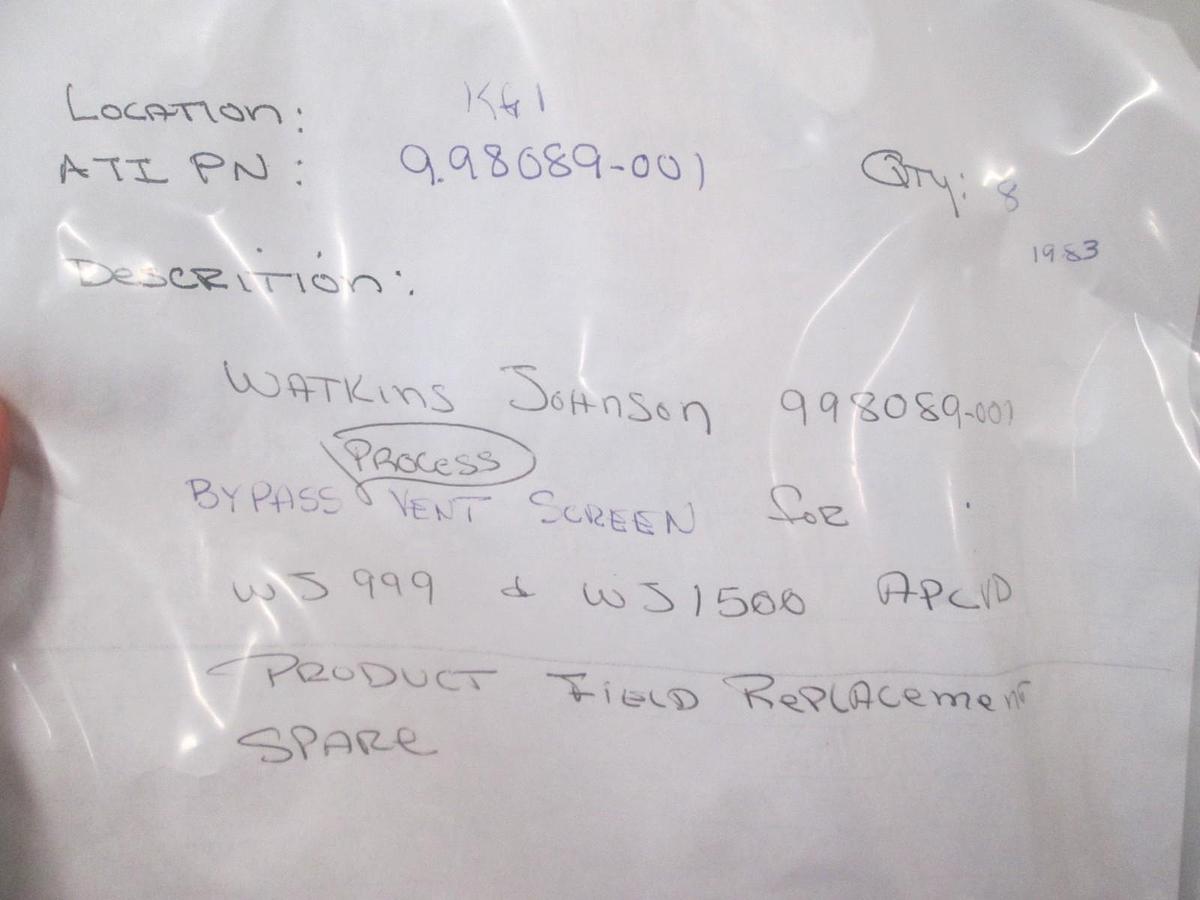 LOCATION: K41
ATI PN: 9.98089-001 QTY: 8
1983
DESCRITION:
WATKINS JOHNSON 998089-001
PROCESS
BYPASS VENT SCREEN FOR
WJ 999 & WJ1500 APCVD
PRODUCT FIELD REPLACEMENT
SPARE